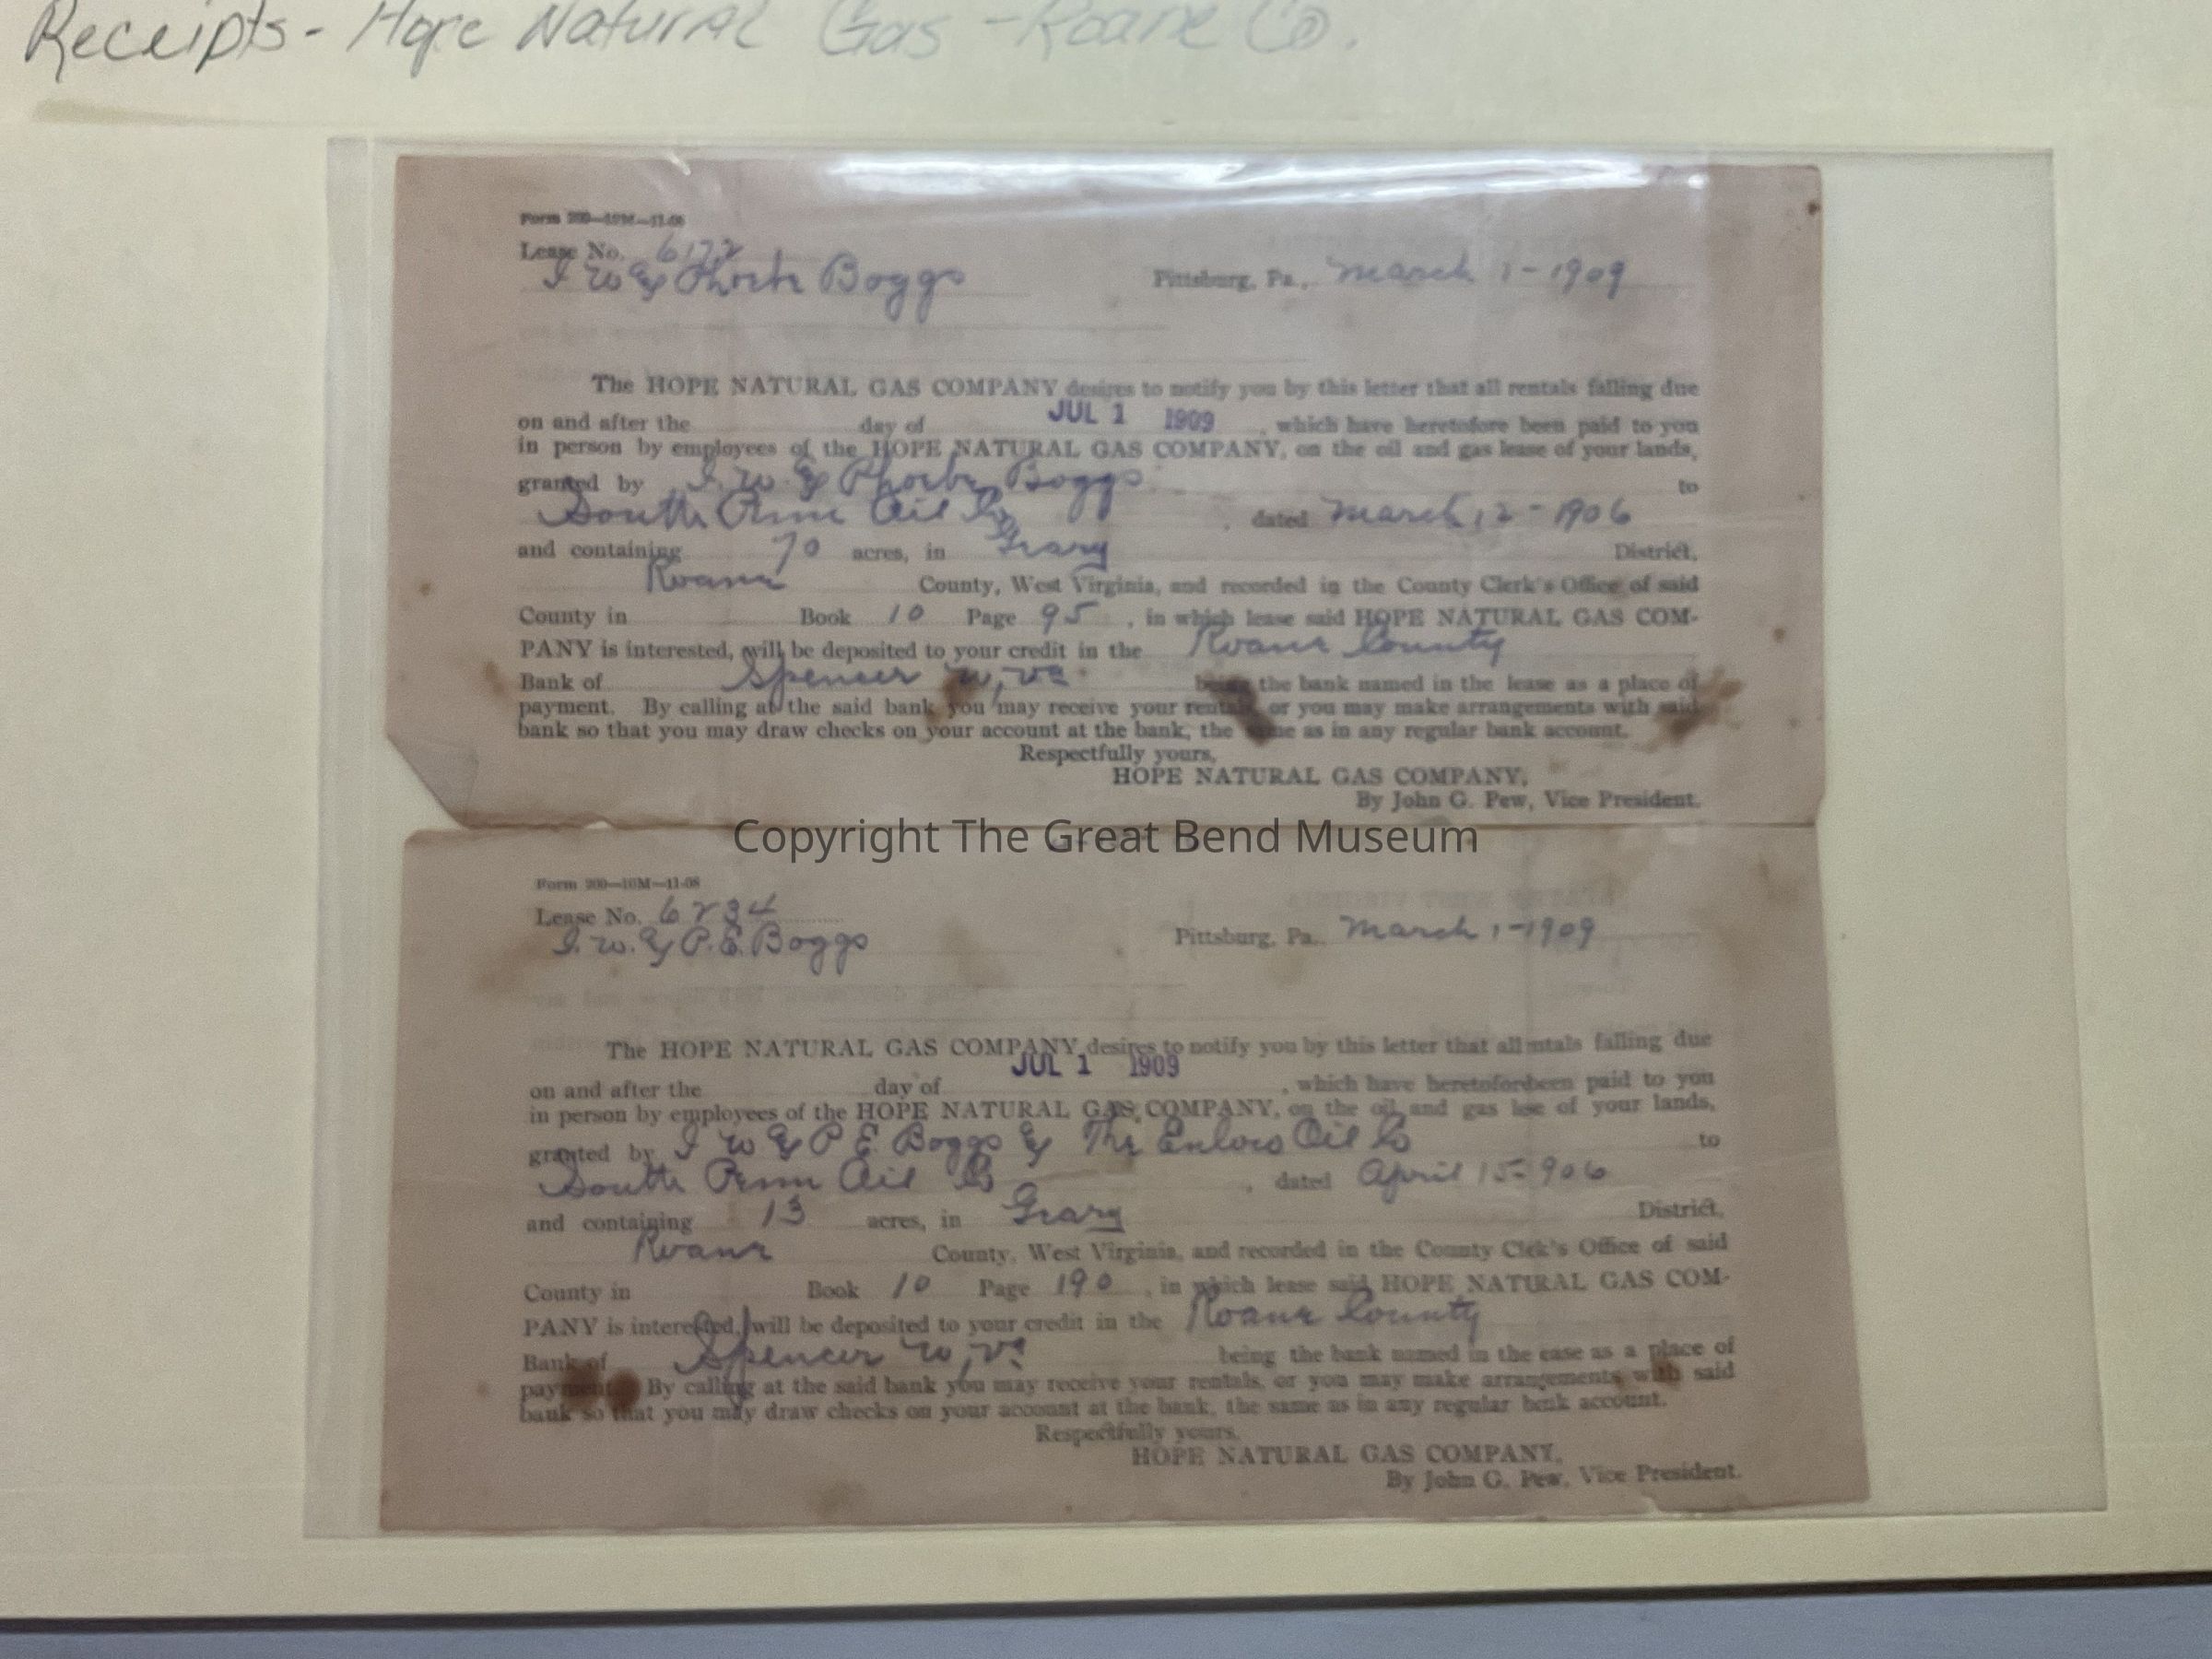 Receipts - Hope Natural Gas - Roane Co.
Form 200—10M—11-08
Lease No. 6172
I W & Phoebe Boggs
Pittsburg, Pa., March 1 - 1909
The HOPE NATURAL GAS COMPANY desires to notify you by this letter that all rentals falling due
on and after the day of JUL 1 1909 , which have heretofore been paid to you
in person by employees of the HOPE NATURAL GAS COMPANY, on the oil and gas lease of your lands,
granted by I. W. & Phoebe Boggs to
South Penn Oil Co , dated March 12 - 1906
and containing 70 acres, in Geary District,
Roane County, West Virginia, and recorded in the County Clerk's Office of said
County in Book 10 Page 95 , in which lease said HOPE NATURAL GAS COM-
PANY is interested, will be deposited to your credit in the Roane County
Bank of Spencer W, Va being the bank named in the lease as a place of
payment. By calling at the said bank you may receive your rentals, or you may make arrangements with said
bank so that you may draw checks on your account at the bank, the same as in any regular bank account.
Respectfully yours,
HOPE NATURAL GAS COMPANY,
By John G. Pew, Vice President.
Copyright The Great Bend Museum
Form 200—10M—11-08
Lease No. 6234
I. W. & P. E. Boggs
Pittsburg, Pa. March 1 - 1909
The HOPE NATURAL GAS COMPANY desires to notify you by this letter that all ntals falling due
on and after the day of JUL 1 1909 , which have heretoforbeen paid to you
in person by employees of the HOPE NATURAL GAS COMPANY, on the oil and gas lse of your lands,
granted by I W & P E Boggs & The Oil Co to
South Penn Oil Co , dated April 15 - 906
and containing 13 acres, in Geary District,
Roane County, West Virginia, and recorded in the County Clek's Office of said
County in Book 10 Page 190 , in which lease said HOPE NATURAL GAS COM-
PANY is interested, will be deposited to your credit in the Roane County
Bank of Spencer W, Va being the bank named in the ease as a place of
payment. By calling at the said bank you may receive your rentals, or you may make arrangements with said
bank so that you may draw checks on your account at the bank, the same as in any regular bank account.
Respectfully yours,
HOPE NATURAL GAS COMPANY,
By John G. Pew, Vice President.